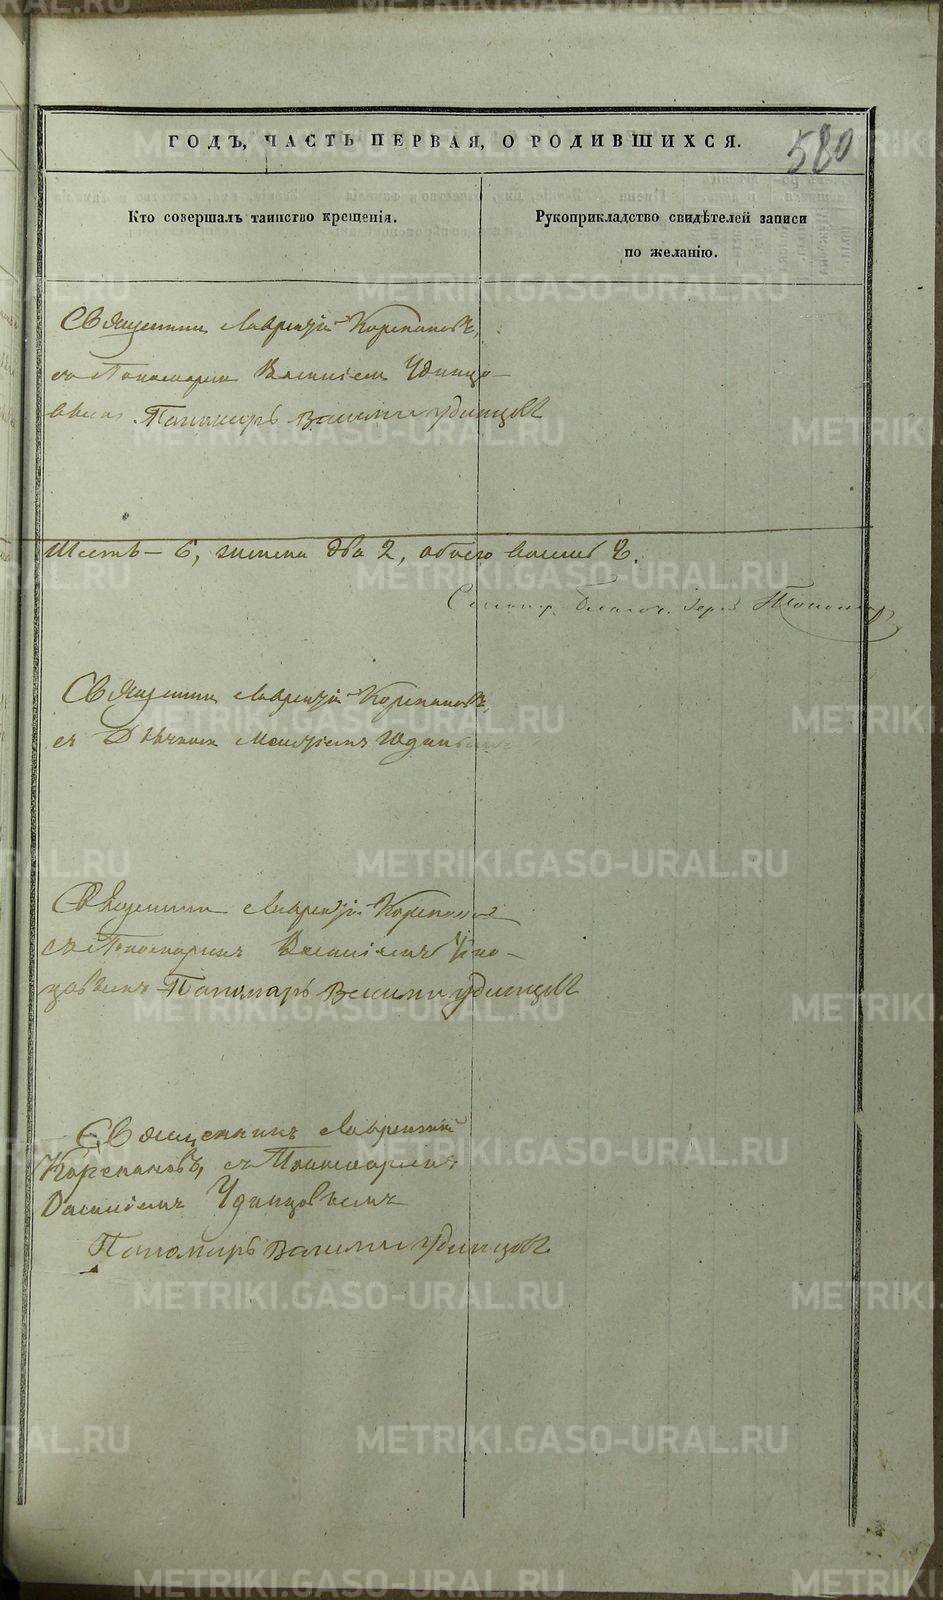 ГОДЪ, ЧАСТЬ ПЕРВАЯ, О РОДИВШИХСЯ.
580
Кто совершалъ таинство крещенія.
Рукоприкладство свидѣтелей записи
по желанію.
Священникъ Лаврентій Корепановъ,
съ Пономаремъ Василіемъ Удинцо-
вымъ Пономарь Василий Удинцовъ
Шесть – 6, женска два 2, обоего
Священникъ Лаврентій Корепановъ,
съ Дьячкомъ
Священникъ Лаврентій Корепановъ
съ Пономаремъ Василіемъ Удин-
цовымъ Пономарь Василий Удинцовъ
Священникъ Лаврентій
Корепановъ, съ Пономаремъ
Василіемъ Удинцовымъ
Пономарь Василий Удинцовъ
METRIKI.GASO-URAL.RU